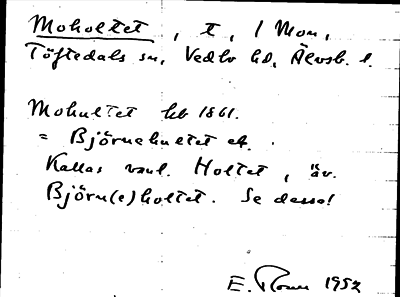 Moholtet, t, 1 Mon,
Töftedals sn, Vedbo hd, Älvsb. l.
Mohultet hb 1861.
= Björnehultet et.
Kallas vanl. Holtet, äv.
Björn(e)holtet. Se dessa!
E. 1952